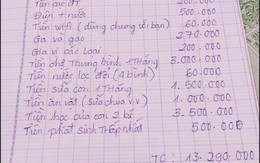 Tiền các ĐT 200.000
Điện + nước 500.000
Tiền wifi (dùng chung với bạn) 60.000
Ga và gạo 270.000
Gia vị các loại 200.000
Tiền chợ Thung bình 1 tháng 3.000.000
Tiền nước lọc đổi (4 bình) 60.000
Tiền sữa con 1 tháng 1.500.000
Tiền ăn vặt (sữa chua v.v) 1.000.000
Tiền học của con 2 bé 3.500.000
Tiền phát sinh thấp nhất 500.000
TC: 13.290.000